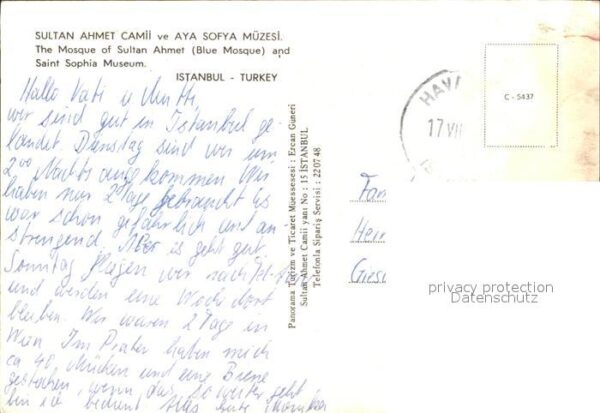 SULTAN AHMET CAMİİ ve AYA SOFYA MÜZESİ.
The Mosque of Sultan Ahmet (Blue Mosque) and
Saint Sophia Museum.
ISTANBUL - TURKEY
Hallo Vati u Mutti,
wir sind gut in Istanbul ge-
landet. Dienstag sind wir um
2°° Nachts angekommen. Wir
haben nur 2 Tage gebraucht. Es
war schon gefährlich und an-
strengend. Aber es geht gut.
Sonntag fliegen wir nach
und werden eine Woche dort
bleiben. Wir waren 2 Tage in
Wien Im Prater haben mich
ca 40 Mücken und eine Biene
gestochen, wenn das so weiter geht
bin ich bedient Alles Gute
Panorama Turizm ve Ticaret Müessesesi : Ercan Güneri
Sultan Ahmet Camii yanı No : 15 İSTANBUL
Telefonla Sipariş Servisi : 22 07 48
HAVA
17 VII
C - 5437
Fam
Herr
Gies
privacy protection
Datenschutz